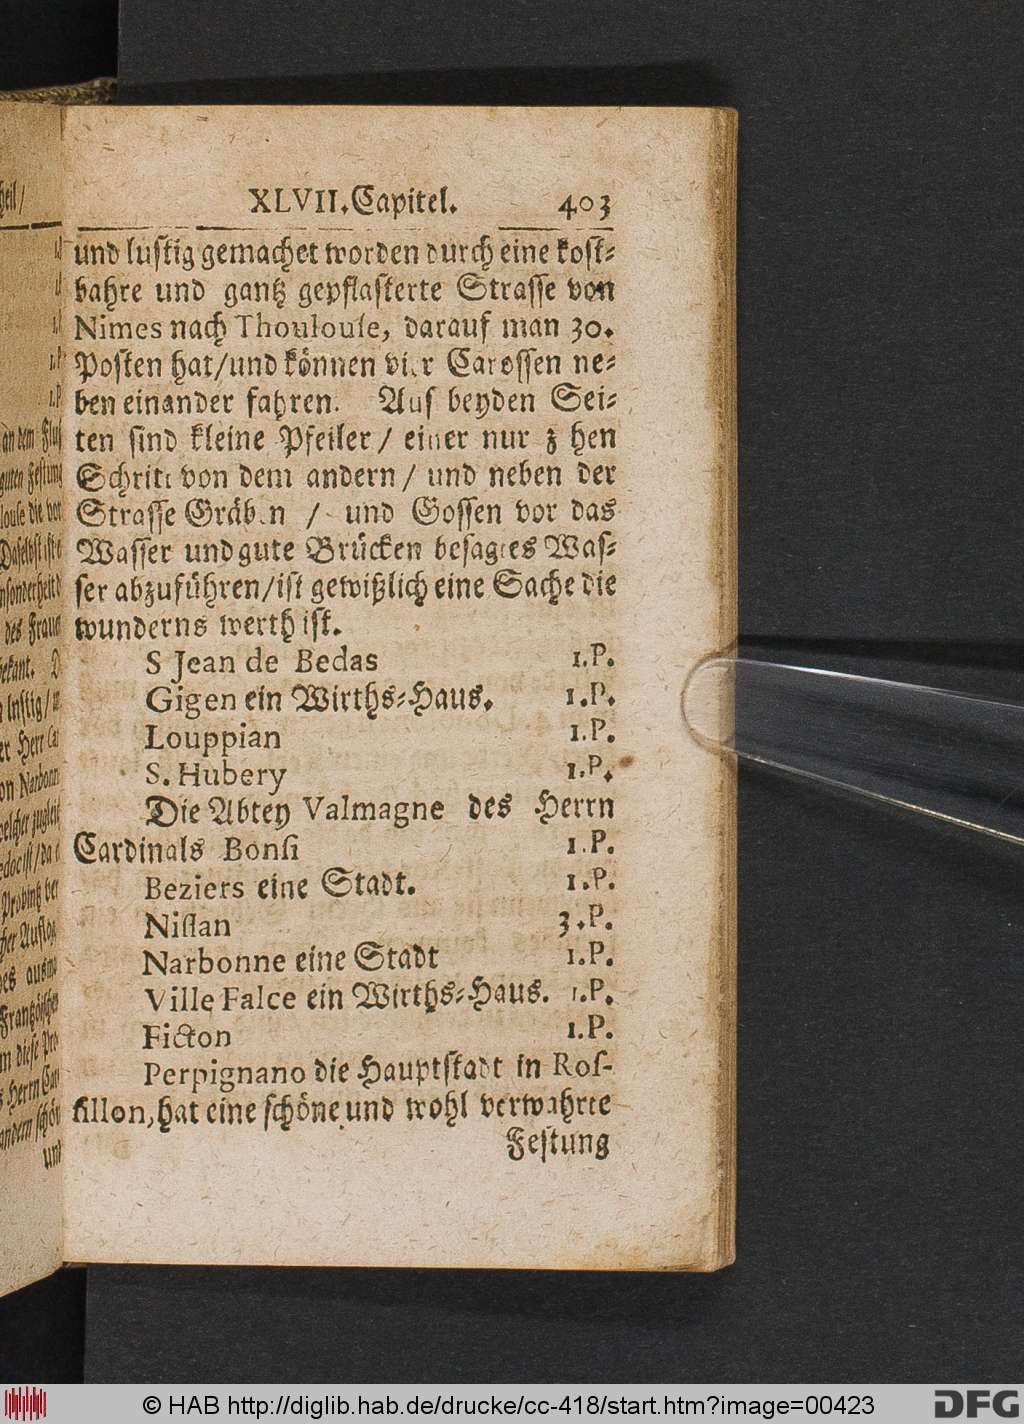 XLVII. Capitel. 403
und lustig gemachet worden durch eine kost-
bahre und gantz gepflasterte Strasse von
Nimes nach Thoulouse, darauf man 30.
Posten hat/und können vier Carossen ne-
ben einander fahren. Auf beyden Sei-
ten sind kleine Pfeiler / einer nur zehen
Schritt von dem andern / und neben der
Strasse Gräben / und Gossen vor das
Wasser und gute Brücken besagtes Was-
ser abzuführen/ist gewißlich eine Sache die
wunderns werth ist.
S Jean de Bedas 1.P.
Gigen ein Wirths-Haus. 1.P.
Louppian 1.P.
S. Hubery 1.P.
Die Abtey Valmagne des Herrn
Cardinals Bonsi 1.P.
Beziers eine Stadt. 1.P.
Nissan 3.P.
Narbonne eine Stadt 1.P.
Ville Falce ein Wirths-Haus. 1.P.
Ficton 1.P.
Perpignano die Hauptstadt in Ros-
sillon, hat eine schöne und wohl verwahrte
Festung
© HAB http://diglib.hab.de/drucke/cc-418/start.htm?image=00423
DFG